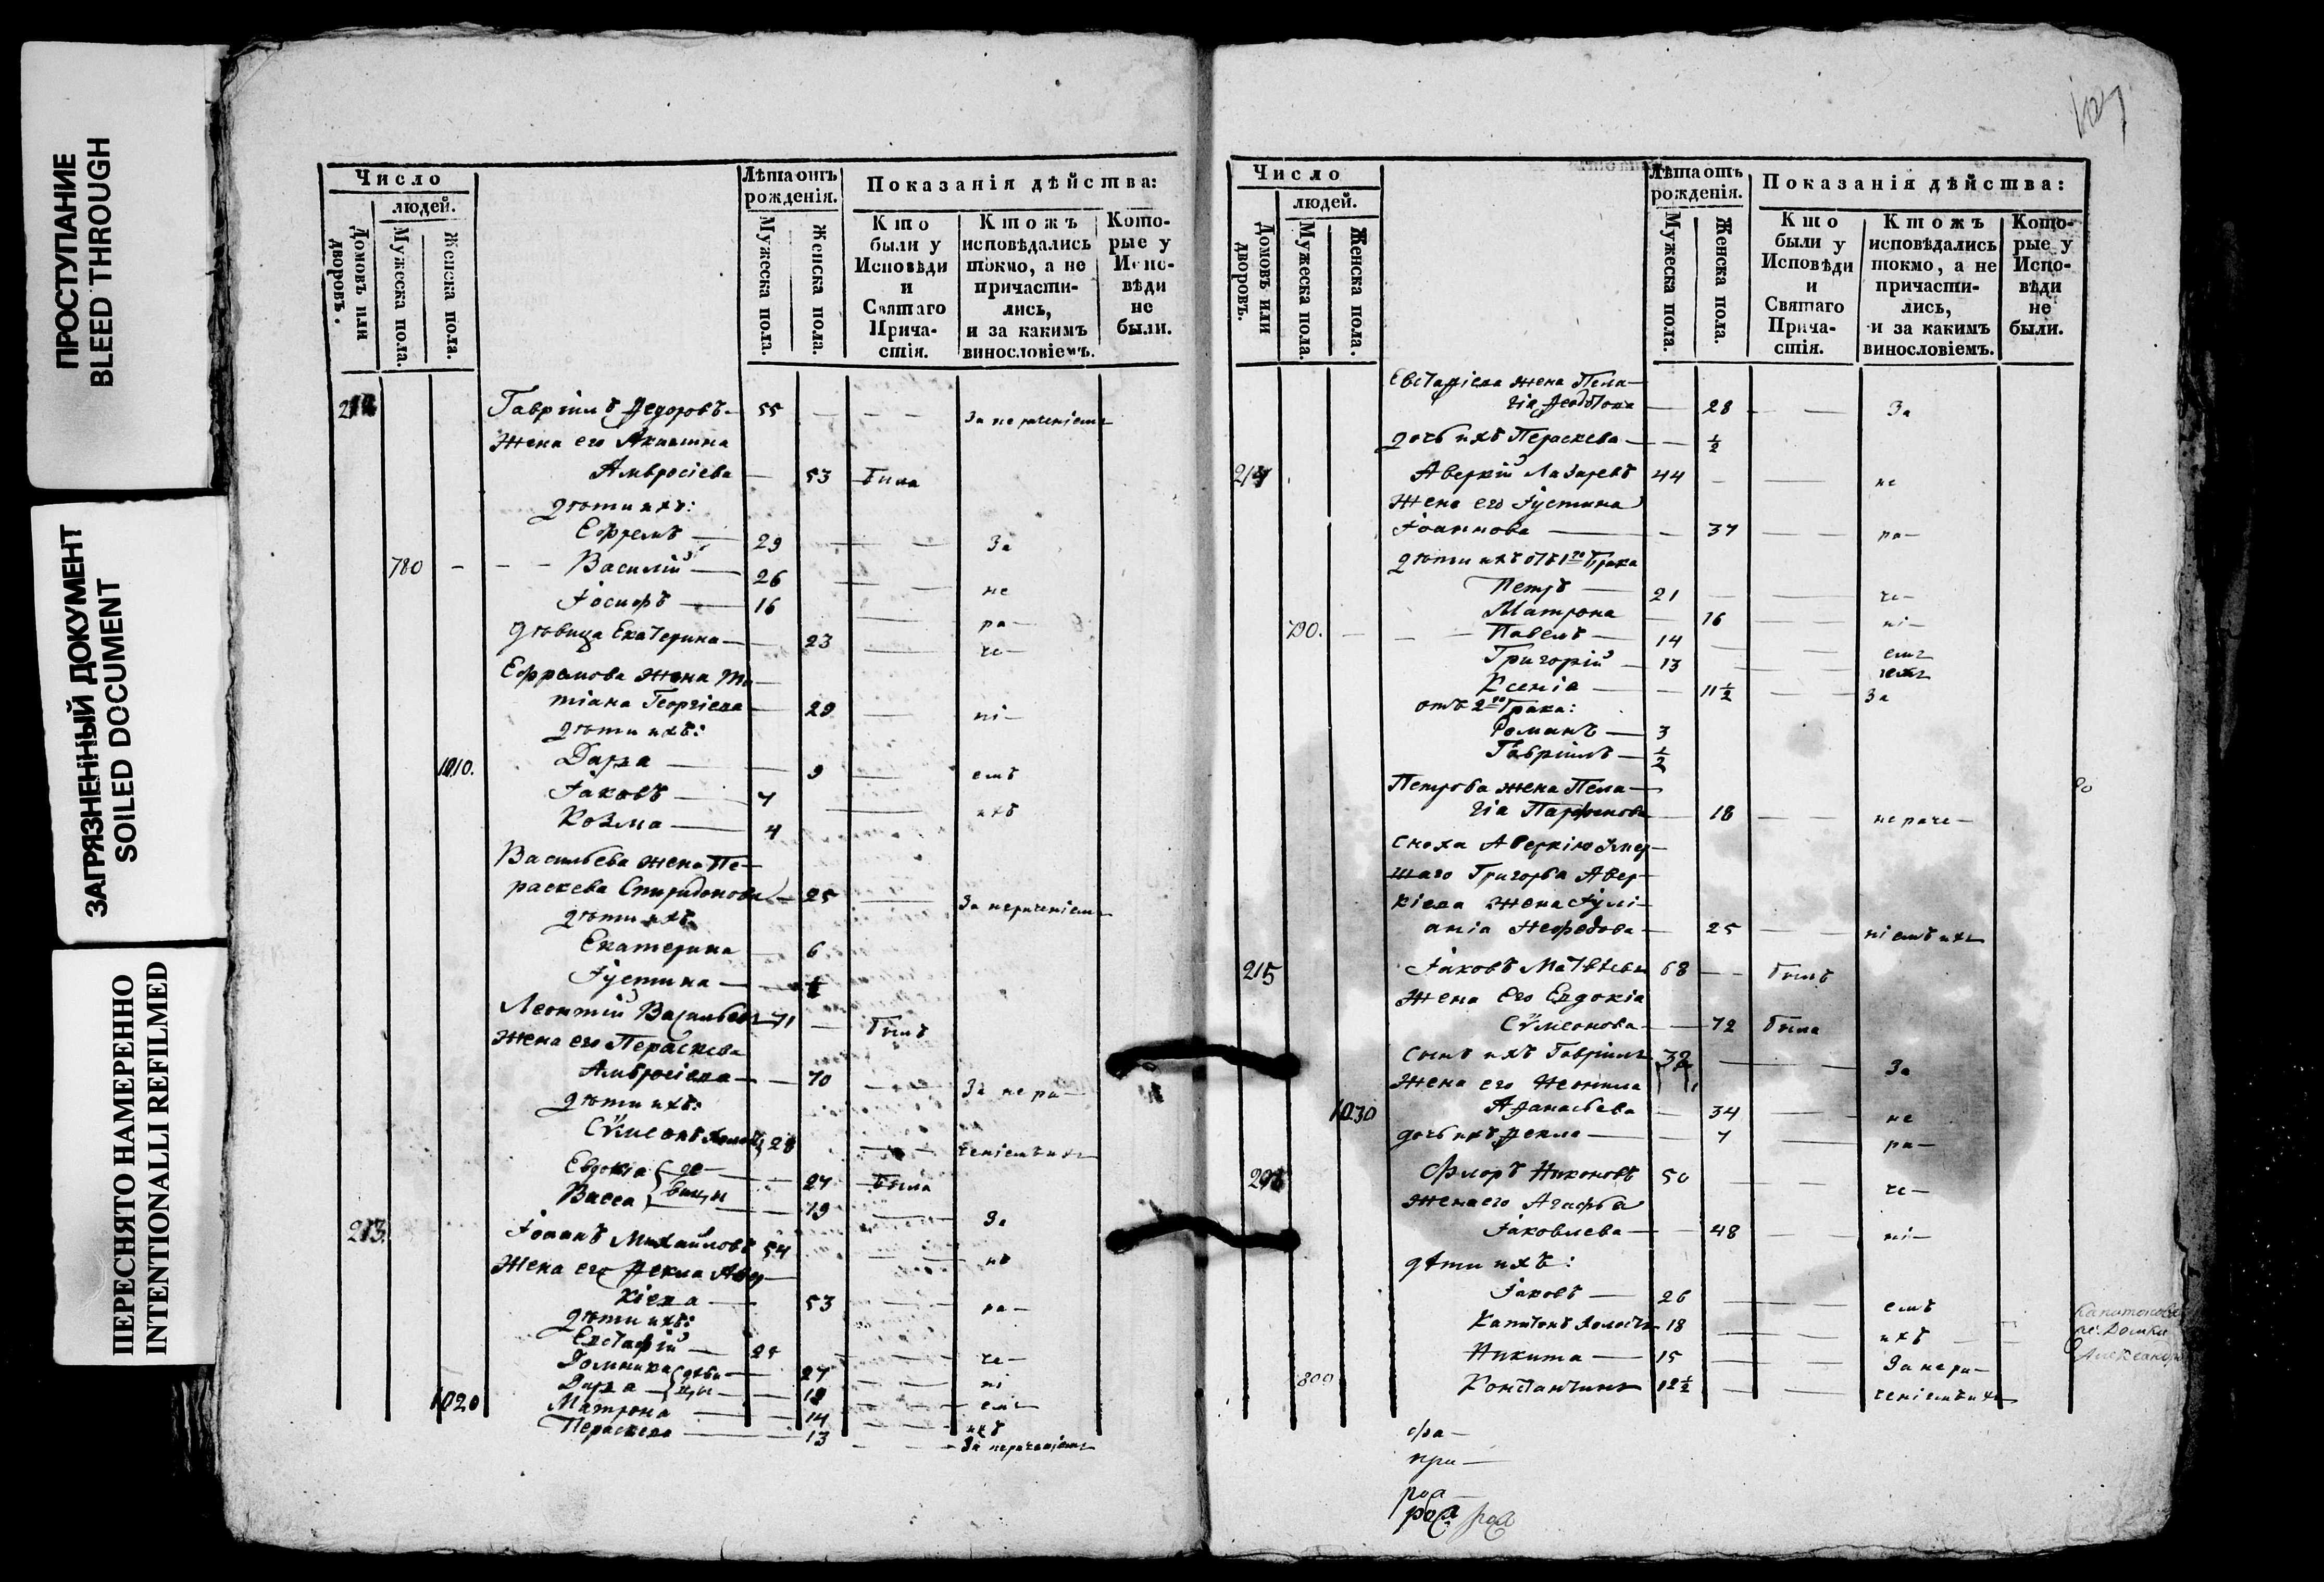 ПРОСТУПАНИЕ
BLEED THROUGH
ЗАГРЯЗНЕННЫЙ ДОКУМЕНТ
SOILED DOCUMENT
ПЕРЕСНЯТО НАМЕРЕННО
INTENTIONALLI REFILMED
Число
людей.
Домовъ или дворовъ.
Мужеска пола.
Женска пола.
Лѣта отъ рожденія.
Мужеска пола.
Женска пола.
Показанія дѣйства:
Кто были у Исповѣди и Святаго Прича-стія.
Ктожъ исповѣдались токмо, а не причасти-лись, и за какимъ винословіемъ.
Кото-рые у Испо-вѣди не были.
212 Гавріилъ Ѳедоровъ 55 За нераченіемъ
Жена его Акилина
Амвросіева 53 Была
дѣти ихъ:
Ефремъ 29 За
780 Василій 26 не
Іосифъ 16 ра-
дѣвица Екатерина 23 че-
Ефремова жена Та-
тіана Георгіева 29 ні-
дѣти ихъ:
1010. Дарья 9 емъ
Іаковъ 7 ихъ
Козма 4
Васильева жена Пе-
раскева Спиридонова 25 За нераченіемъ
дѣти ихъ
Екатерина 6
Іустина ½
Леонтій Васильевъ 71 Былъ
Жена его Пераскева
Амвросіева 70 За не ра-
дѣти ихъ:
Сѵмеонъ 28 ченіемъ ихъ
Евдокіа де- 27 Была
Васса вицы 19 За
213. Іоаннъ Михайловъ 54 не
Жена его Ѳекла Авер-
кіева 53 ра-
дѣти ихъ:
Евстафій че-
Домника дѣви- 27 ні
Дарья цы емъ
1020 Матрона 14 ихъ
Пераскева 13 За нераченіемъ
Число
людей.
Домовъ или дворовъ.
Мужеска пола.
Женска пола.
Лѣта отъ рожденія.
Мужеска пола.
Женска пола.
Показанія дѣйства:
Кто были у Исповѣди и Святаго Прича-стія.
Ктожъ исповѣдались токмо, а не причасти-лись, и за какимъ винословіемъ.
Кото-рые у Испо-вѣди не были.
Евстафіева жена Пела-
гіа 28 За
дочь ихъ Пераскева ½
214 Аверкій Лазаревъ 44 не
Жена его Іустина
Іоаннова 37 ра-
дѣти ихъ отъ 1го брака
Петръ 21 че-
Матрона 16 ні-
790. Павелъ 14 емъ
Григорій 13 ихъ
Ксеніа 11½ За
отъ 2го брака:
Романъ 3
Гавріилъ ½
Петрова жена Пела-
гіа Парфенова 18 нераче-
сноха Аверкію умер-
шаго Григорья Авер-
кіева жена Іулі-
аніа Мефодова 25 ніемъ ихъ
215 Іаковъ Матвѣевъ 68 былъ
Жена его Евдокіа
Сѵмеонова 72 была
Сынъ ихъ Гавріилъ 32 За
Жена его Неонила
1030 Аѳанасьева 34 не
дочь ихъ Ѳекла 7 ра-
Флоръ Никоновъ 50 че-
Жена его Агафьа
Іаковлева 48 ні-
дѣти ихъ:
Іаковъ 26 емъ
Капитонъ холостъ 18 ихъ
Никита 15 За нера-
800 Константинъ 12½ ченіемъ ихъ
при-
роа
роа роа